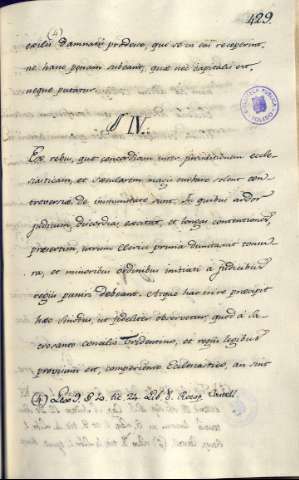 429.
(4)
exilii damnati prodeuo, que se in eâ receperint,
ne hanc penam subeant, quæ nec capitalis est,
neque putatur.
§ IV.
Ex rebus, quæ concordiam inter jurisdictionem eccle-
siasticam, et sæcularem magis turbare solent con-
troversiæ de immunitate sunt. In quibus
judicum discordias, excitat, et longas contentiones,
præsertim, utrum Clerici prima dumtaxat tonsu-
ra, et minoribus ordinibus initiati a judicibus
regiis puniri debeant. Atque hac in re præcipit
hæc Sinodus, ut fideliter observetur, quod à sa-
crosanto concilio Tridentino, et regiis legibus
provisum est, comperiente Eclesiastico, an sint
(4) Lex 9. § 20. tit. 24. Lib. 8. Recop. Castell.
BIBLIOTECA PUBLICA
TOLEDO